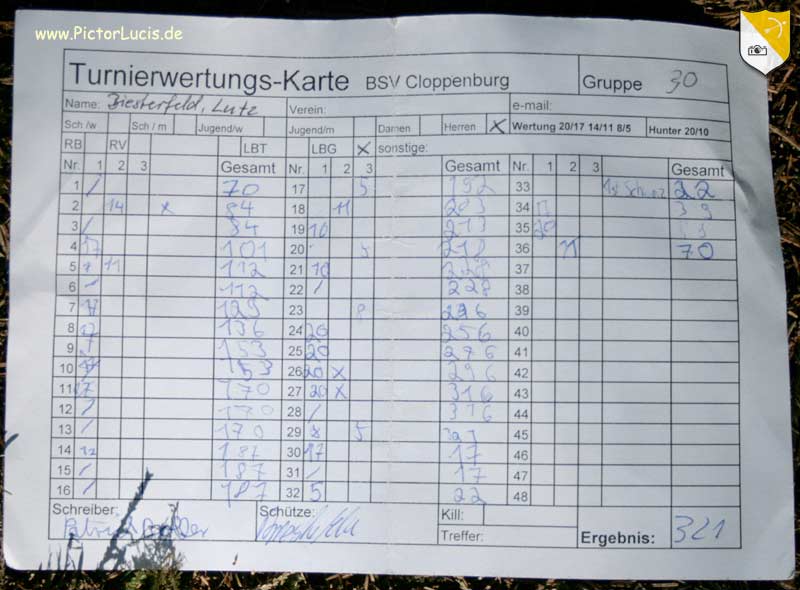 www.PictorLucis.de
Turnierwertungs-Karte BSV Cloppenburg Gruppe 30
Name: Biesterfeld, Lutz Verein: e-mail:
Sch /w Sch / m Jugend/w Jugend/m Damen Herren X Wertung 20/17 14/11 8/5 Hunter 20/10
RB RV LBT LBG X sonstige:
Nr. 1 2 3 Gesamt Nr. 1 2 3 Gesamt Nr. 1 2 3 Gesamt
1 / 70 17 5 192 33 22
2 14 x 84 18 11 203 34 17 39
3 / 84 19 10 213 35 20
4 17 101 20 5 218 36 11 70
5 11 112 21 10 228 37
6 / 112 22 / 228 38
7 17 129 23 8 236 39
8 136 24 20 256 40
9 153 25 20 276 41
10 153 26 20 x 296 42
11 17 170 27 20 x 316 43
12 / 170 28 / 316 44
13 / 170 29 x 5 321 45
14 17 187 30 17 17 46
15 / 187 31 / 17 47
16 / 187 32 5 22 48
Schreiber: Schütze: Kill:
Treffer: Ergebnis: 321